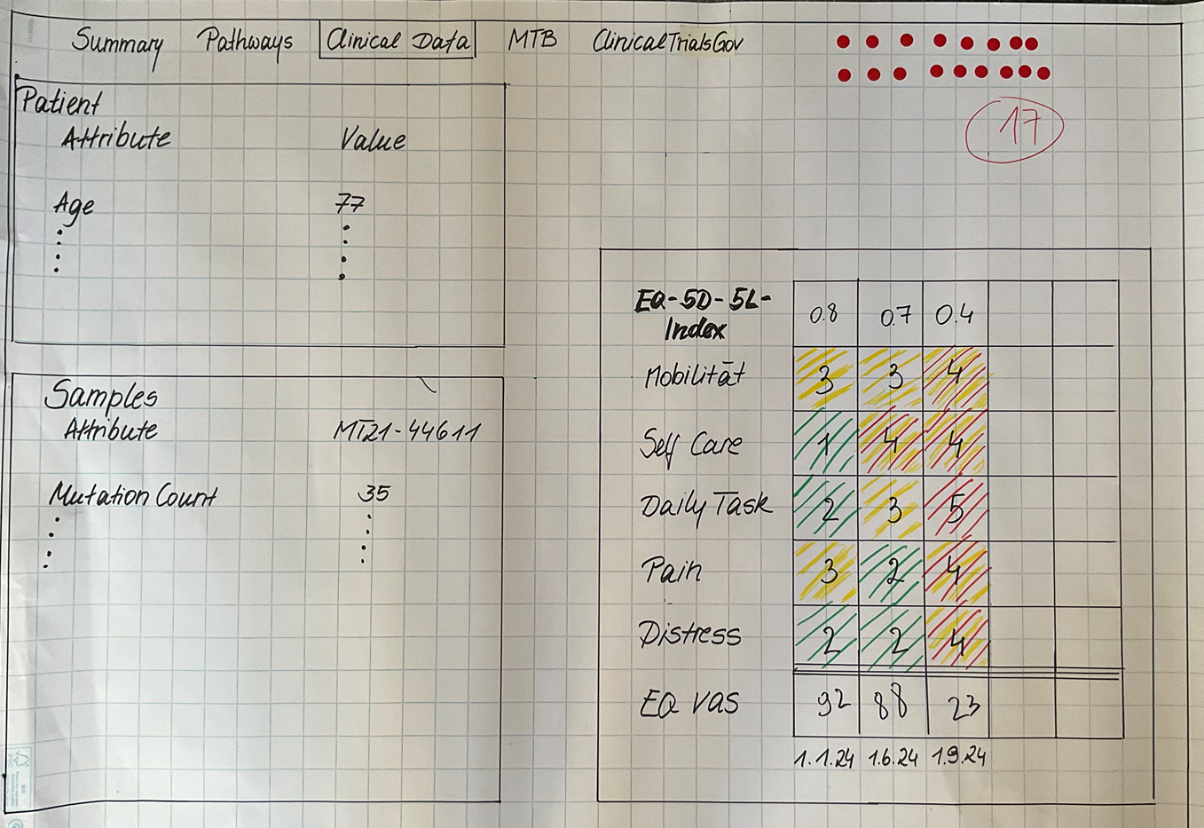 Summary Pathways Clinical Data MTB ClinicalTrialsGov
17
Patient
Attribute Value
Age 77
Samples
Attribute MT21-44611
Mutation Count 35
EQ-5D-5L-
Index 0.8 0.7 0.4
Mobilität 3 3 4
Self Care 1 4 4
Daily Task 2 3 5
Pain 3 2 4
Distress 2 2 4
EQ VAS 92 88 23
1.1.24 1.6.24 1.9.24